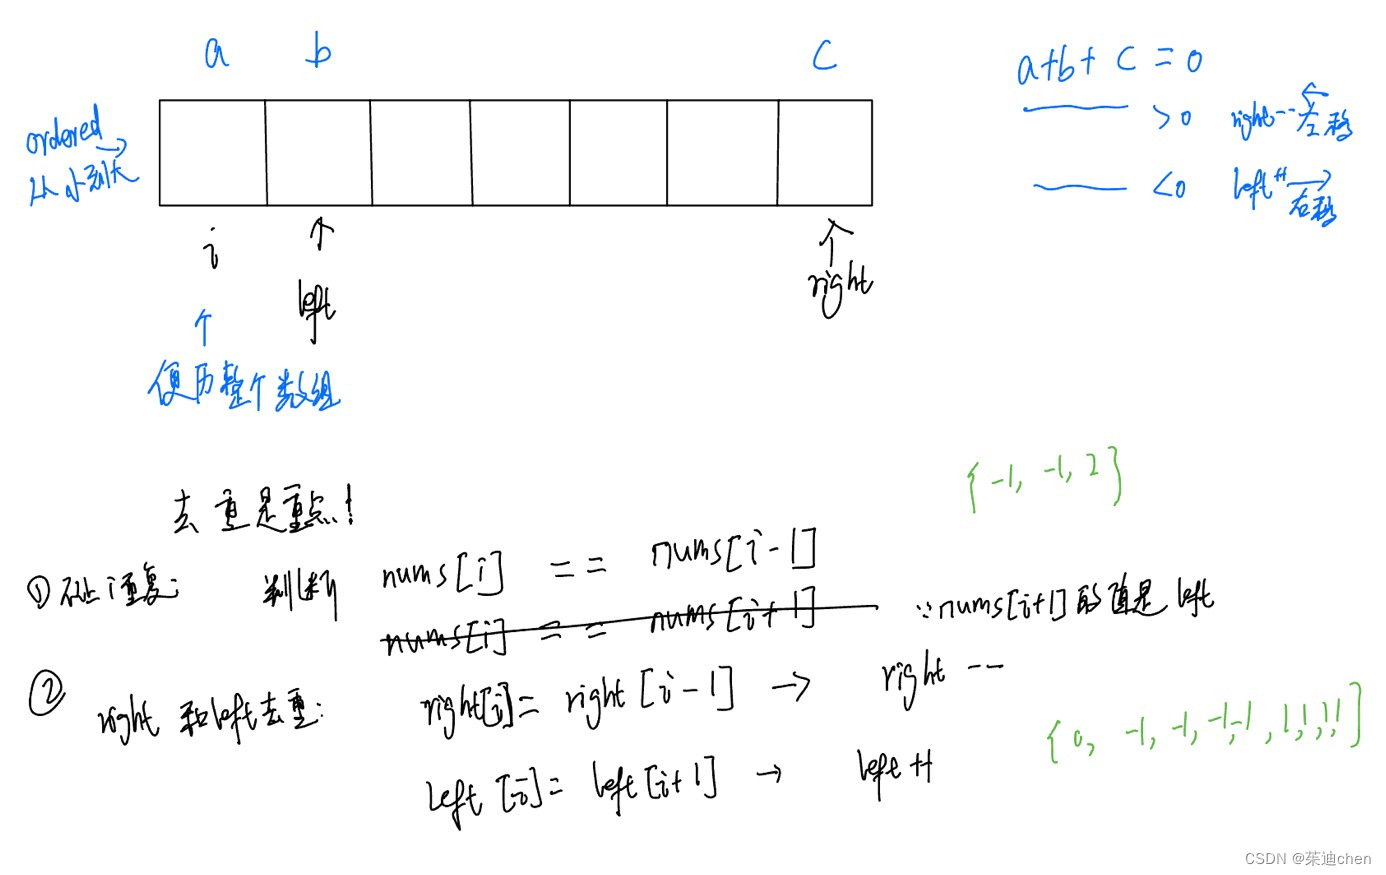 a b c
a+b+c=0
ordered
从小到大
>0 right-- 左移
<0 left++ 右移
i left right
便历整个数组
{-1, -1, 2}
去重是重点!
① i重复: 判断 nums[i] == nums[i-1]
nums[i] == nums[i+1] ∵nums[i+1]的值是left
② right和left去重: right[i]= right[i-1] → right --
{0, -1, -1, -1, -1, 1, 1, 1, 1}
left[i]= left[i+1] → left++
CSDN @茱迪chen